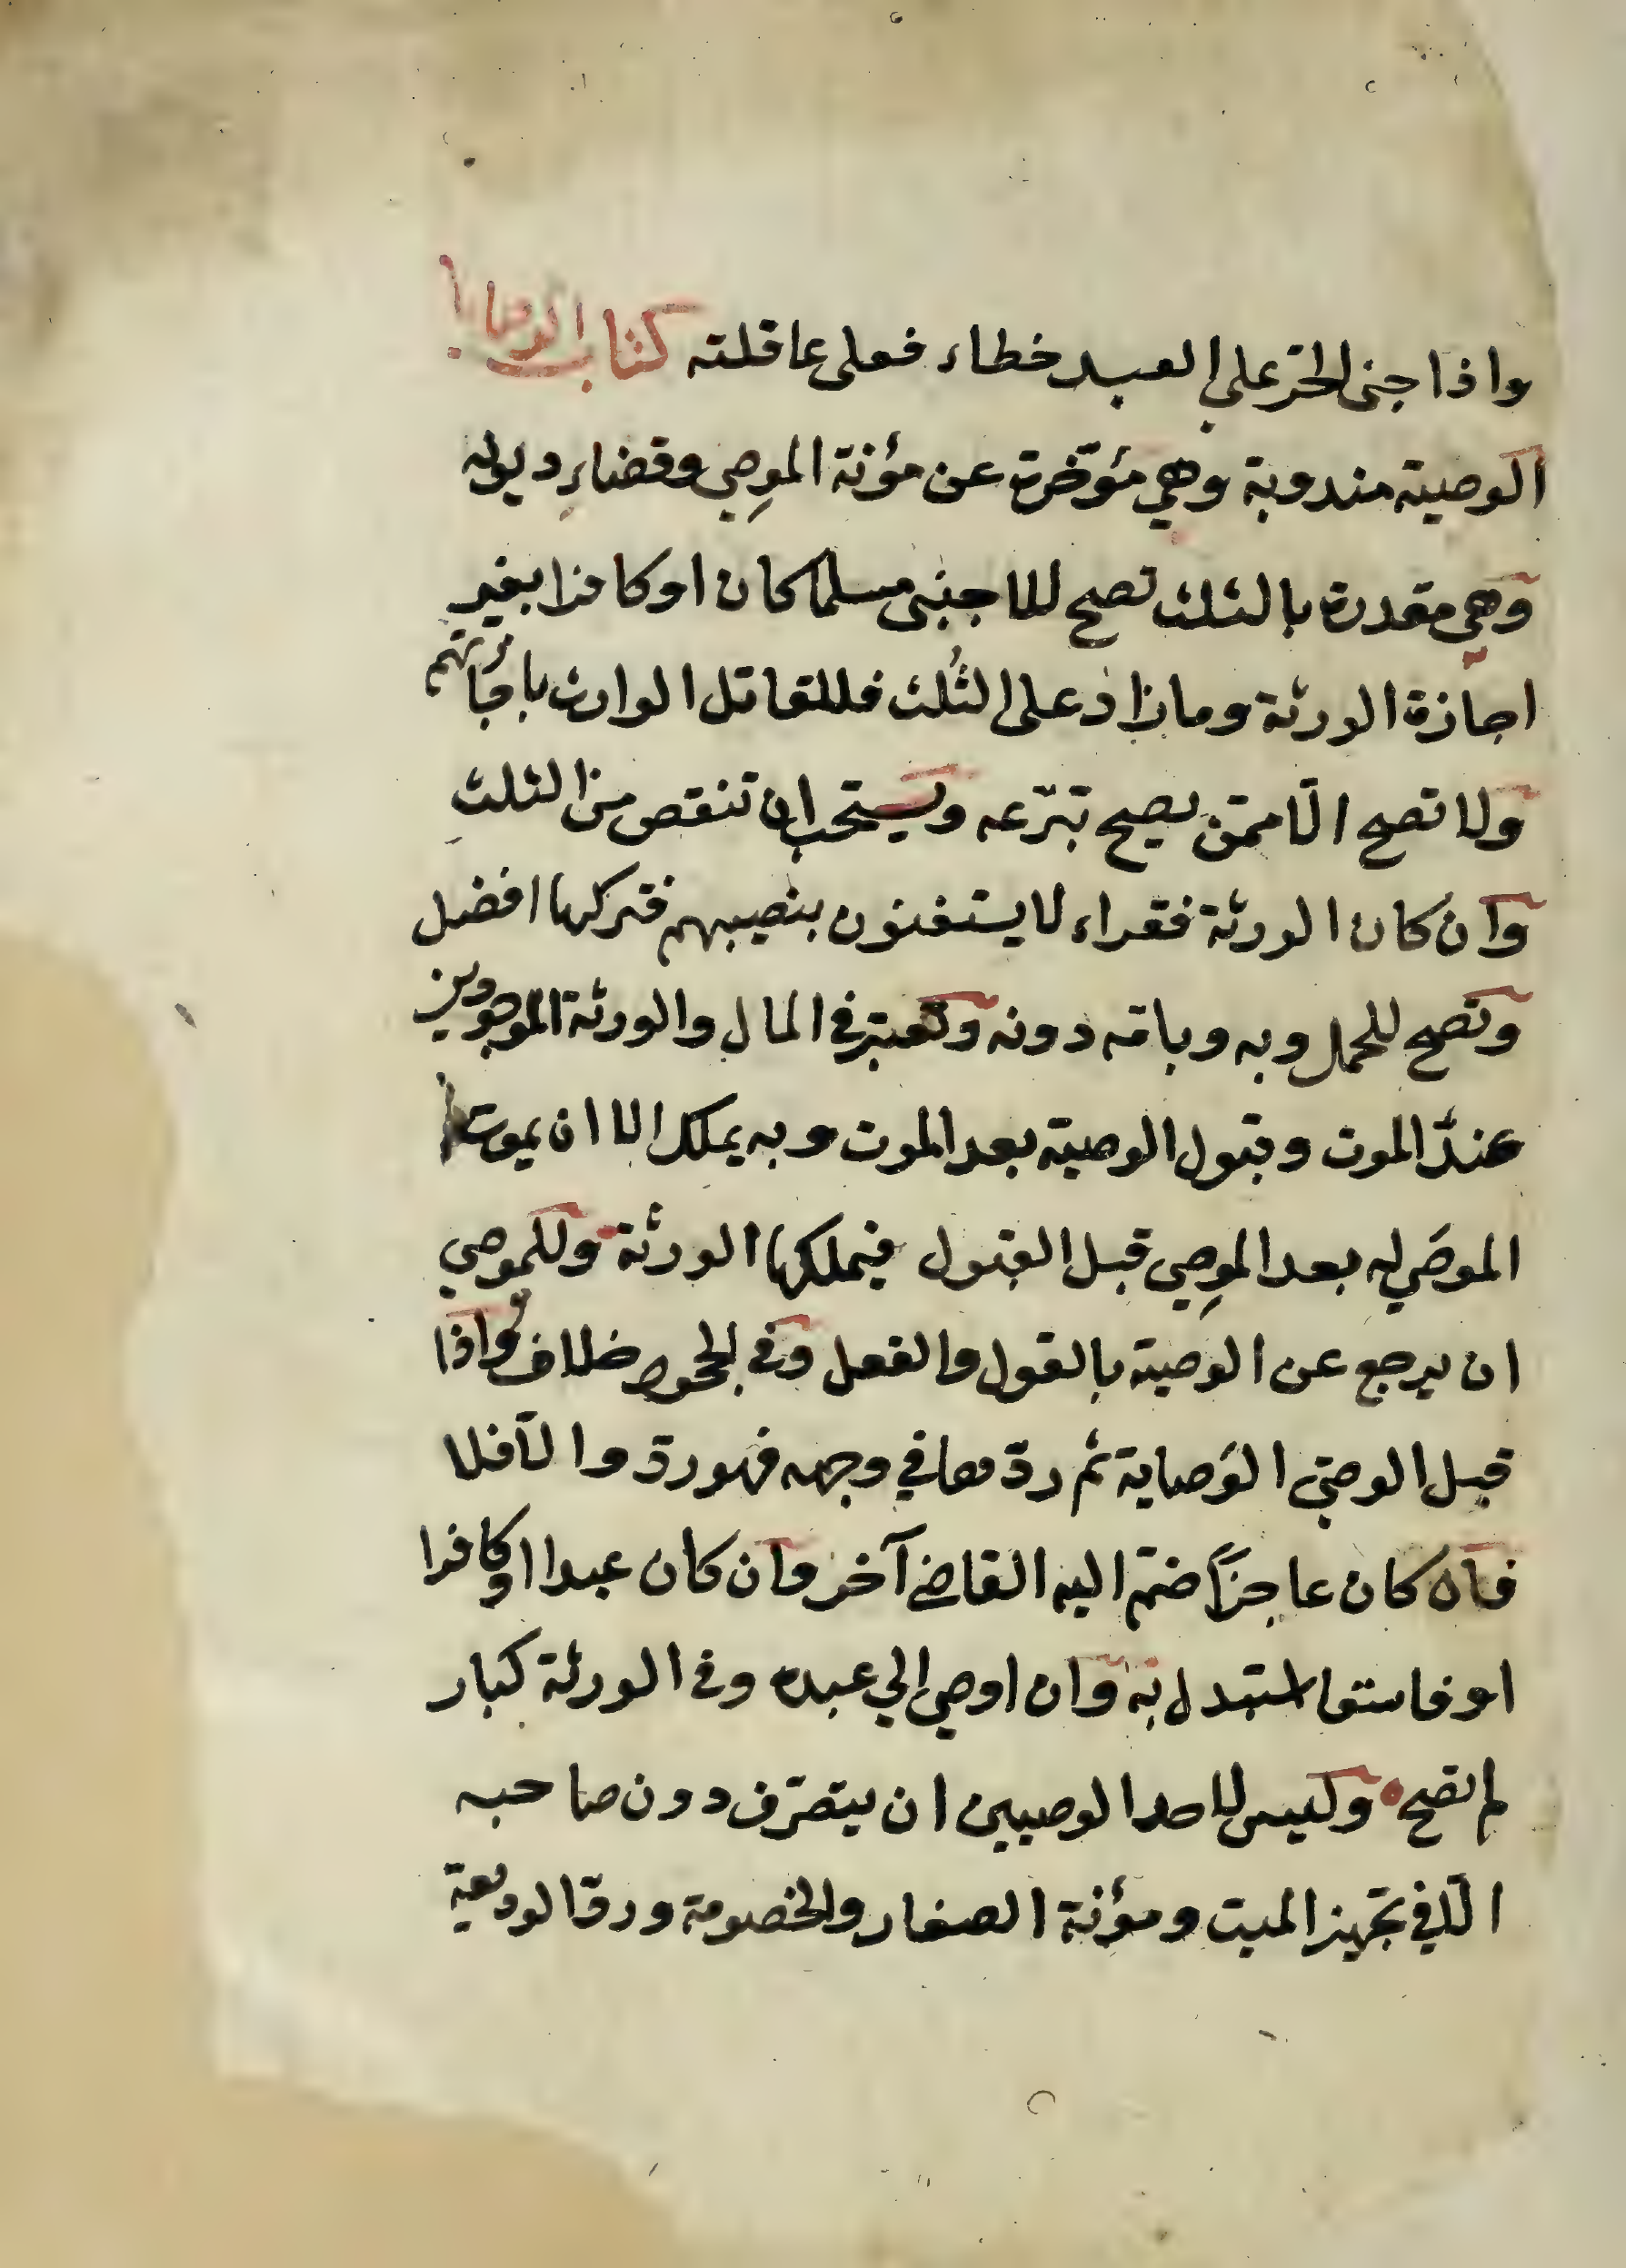 واذا جنى الحرّ على العبد خطاء فعلى عاقلته كتاب الوصايا
الوصية مندوبة وهي مؤخّرة عن مؤنة الموصِي وقضاءِ ديونه
وهي مقدرة بالثلث تصح للاجنبى مسلما كان او كافرا بغير
اجازة الورثة وما زاد على الثُلث فللقاتل الوارث باجازتهم
ولا تصح الّا ممّن يصح تبرّعه ويستحب ان تنقص من الثلث
وان كان الورثة فقراء لا يستغنون بنصيبهم فتركها افضل
وتصح للحمل وبه وبامّه دونه وتعتبر في المال والورثة الموجودين
عند الموت وقبول الوصية بعد الموت وبه يملك الا ان يموت
الموصَى له بعد الموصِي قبل القبول فيملكها الورثة وللموصي
ان يرجع عن الوصية بالقول والفعل وفي الجحود خلاف واذا
قبل الوصيّ الوَصاية ثم ردّها في وجهه فهو ردّ والّا فلا
فان كان عاجزًا ضمّ اليه القاضي آخر وان كان عبدا او كافرا
او فاسقا استبدل به وان اوصى الي عبده وفي الورثة كبار
لم تصح وليس لاحد الوصيين ان يتصرّف دون صاحبه
الّا في تجهيز الميت ومؤنة الصغار والخصومة وردّ الوديعة